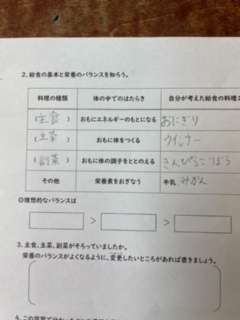 2. 給食の基本と栄養のバランスを知ろう。
料理の種類 体の中でのはたらき 自分が考えた給食の料理
(主食) おもにエネルギーのもとになる おにぎり
(主菜) おもに体をつくる ウインナー
(副菜) おもに体の調子をととのえる きんぴらごぼう
その他 栄養素をおぎなう 牛乳 みかん
◎理想的なバランスは
> >
3. 主食、主菜、副菜がそろっていましたか。
栄養のバランスがよくなるように、変更したいところがあれば書きましょう。